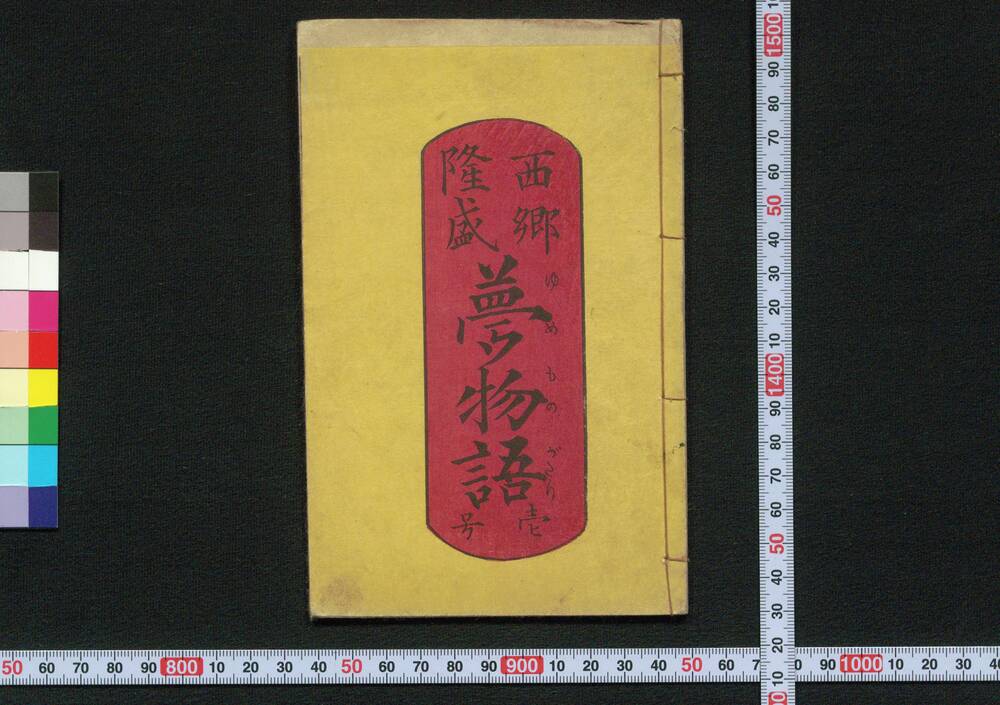 西郷
隆盛
夢物語
ゆめものがたり
壱
号
50 60 70 80 90 800 10 20 30 40 50 60 70 80 90 900 10 20 30 40 50 60 7
0 90 1000 10 20 30 40
1500 90 80 70 60 50 40 30 20 10 1400 90 80 70 60 50 40 30 20 10